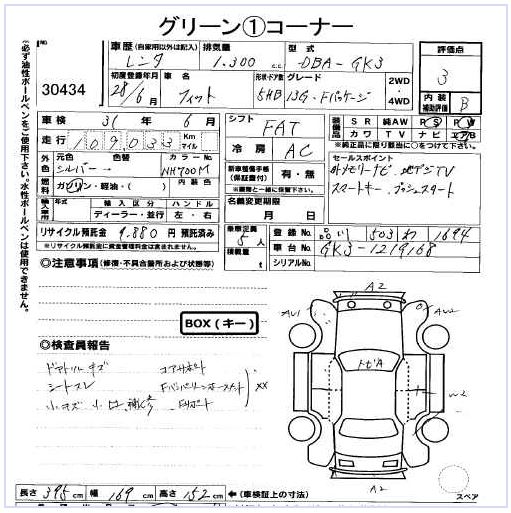 グリーン①コーナー
※必ず油性ボールペンをご使用下さい。水性ボールペンは使用できません。
30434
車歴 (自家用以外は記入) レンタ 排気量 1,300 c.c. 型式 DBA-GK3 評価点 3
初度登録年月 28/6月 車名 フィット 形状・ドア数 5HB グレード 13G・Fパッケージ 2WD・4WD 内装補助評価 B
車検 31年6月 シフト FAT 装備品 SR 純AW PS PW
走行 109033 Km マイル 冷房 AC カワ TV ナビ エアB
※純正品に限り該当に○をつけて下さい。
外色 元色 シルバー 色替 カラーNo. NH700M 新車整備手帳(保証書付) 有・無 セールスポイント
※車と一緒にご搬入下さい。
燃料 ガソリン・軽油・( ) 外メモリーナビ 地デジTV
スマートキー、プッシュスタート
輸入車用 輸入区分 ハンドル 名義変更期限 月 日
ディーラー・並行 左・右
リサイクル預託金 9,880円 預託済み 乗車定員 5人 登録No. 品川 503 わ 1694
※リサイクル預託金に資金管理料金は含まれておりません。 積載量 t 車台No. GK3-1219168
シリアルNo.
◎注意事項 (修復・不具合箇所および状態等)
BOX(キー)
◎検査員報告
ドアトリムキズ コアサポート
シートスレ
XX
小キズ 小凹
A2
AU1
AW2
トビA
W2
A2
長さ 395cm 幅 169cm 高さ 152cm ←(車検証上の寸法)
スペア